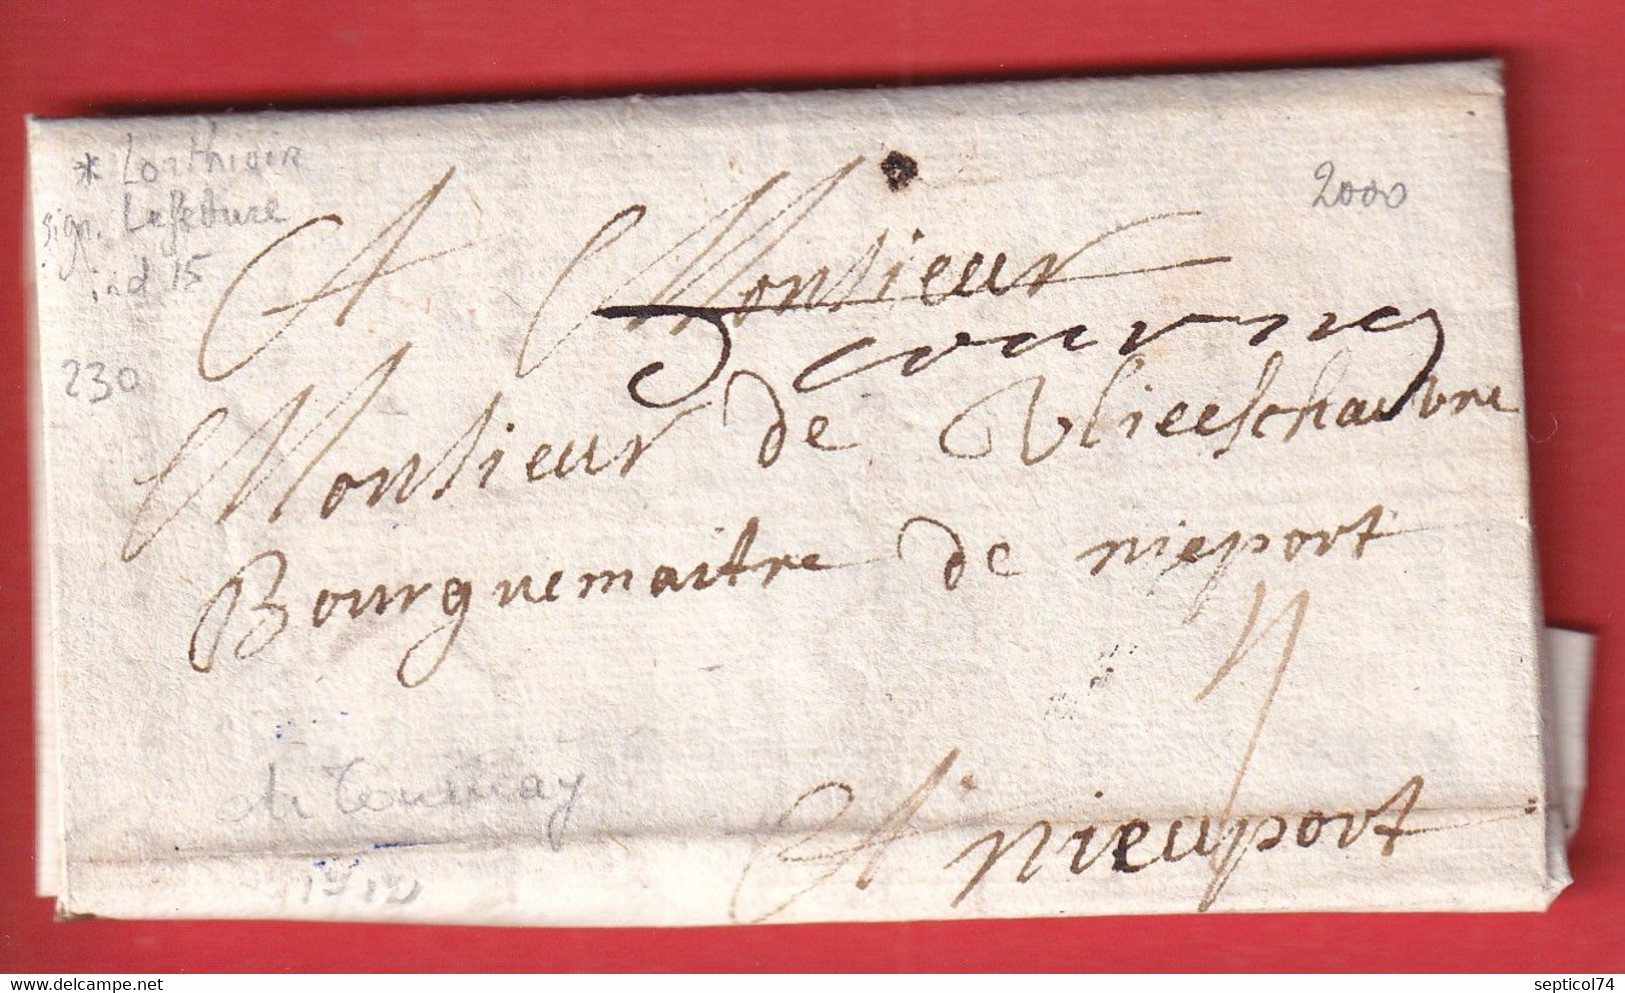 * Lorthioir
sign. Lefebure
ind 15
2000
230
A Monsieur
D tournay
Monsieur de Vlieeschauvre
Bourguemaitre de nieport
4
de Tournay
A nieuport
delcampe.net
septicol74